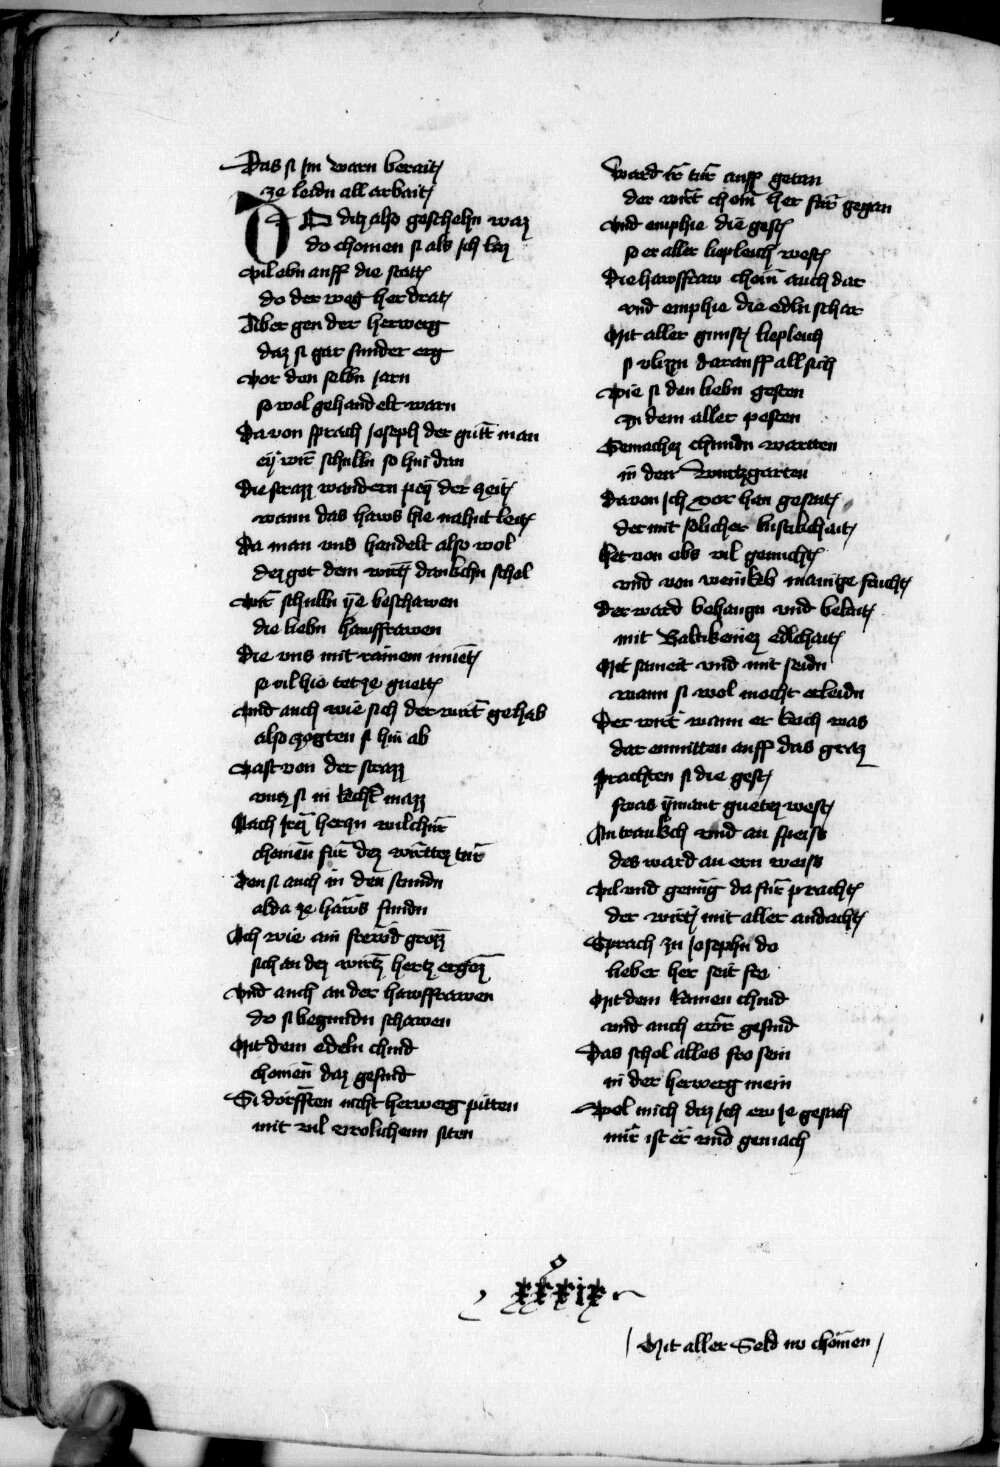 Das si jm warn berait
ze leidn all arbait
DO ditz also geschehn waz
do chomen si als jch laz
Vil ebn auff die stat
do der weg her drat
Aber gen der herwerg
daz si gar sunder erg
Vor den selbn jarn
so wol gehandelt warn
Da von sprach joseph der gůt man
ey wir schulln so hin dan
Die strazz wandern pey der zeit
wann das haws hie nahnt leit
Da man vns handelt also wol
dez got dem wirt dankchn schol
Wir schulln ye beschawen
die liebn hawsfrawen
Die vns mit rainem muet
so vil hie tet ze guett
Vnd auch wie sich der wirt gehab
also zogten si hin ab
Vast von der strazz
vntz si in recht mazz
Nach jrn herczn wilchur
chomen fur dez wirttez tur
Den si auch in den stundn
alda ze haws fundn
Ach wie ain frewd grozz
sich an dez wirtz hertz ergoz
Vnd auch an der hawsfrawen
do si begundn schawen
Mit dem edeln chind
chomen daz gesind
Si dorfften nicht herwerg pitten
mit vil vrolichenn siten
Ward ir tur auff getan
der wirt chom her fur gegan
Vnd emphie die gest
so er aller liepleich west
Die hawsfraw chom auch dar
vnd emphie die edln schar
Mit aller gunst liepleich
si vlizzn darauff all sich
Wie si den liebn gesten
Zu dem aller pesten
Gemachez chundn wartten
in den Wurtzgarten
Da von jch vor han gesait
der mit solicher lustikchait
Het von obs vil genucht
vnd von weinkch manige frucht
Der ward behangn vnd belait
mit Baltikeniez edlchait
Mit sameit vnd mit seidn
wann si wol mocht erleidn
Der wirt wann er reich was
dar enmitten auff das graz
Prachten si die gest
swas ymant guetez west
An trankch vnd an speiss
des ward an ern weiss
Vil vnd genug da fur pracht
der wirt mit aller andacht
Sprach zu josephn do
lieber her seit fro
Mit dem rainen chind
vnd auch ewr gesind
Das schol alles fro sein
in der herwerg mein
Wol mich daz jch ew je gesach
mir ist er vnd gemach
xxxix
Mit aller Seld nu chomen